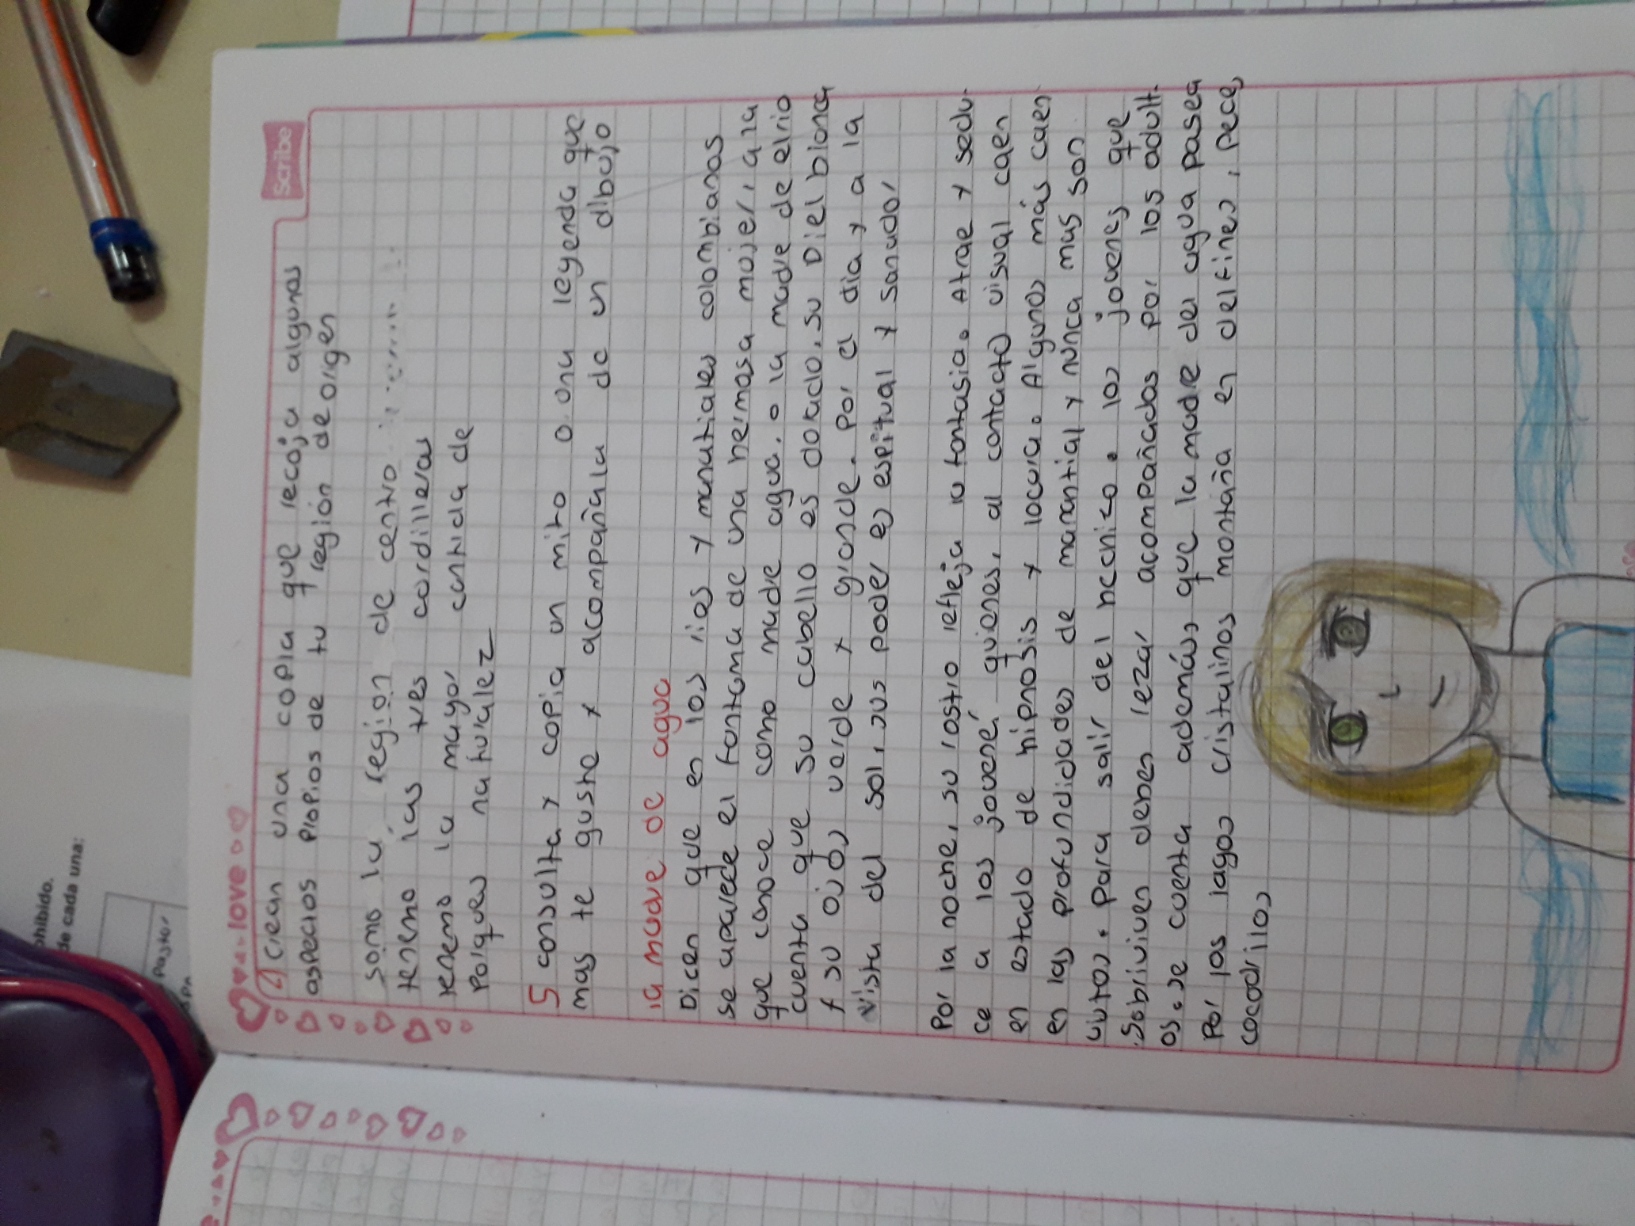 love
Scribe
4 crean una copla que recoja algunos
aspectos propios de tu región de origen
somo la region de centro
tenemo las tres cordilleras
tenemo la mayor cantida de
porques naturalez
5 consulta y copia un mito o una leyenda que
mas te guste y acompañala de un dibujo
la madre de agua
Dicen que en los rios y manatiales colombianos
se aparede el fantama de una hermosa mojer, a ra
que conoce como madre agua. o la madre de el rio
cuenta que su cabello es dorado, su Diel blanca
y su ojos verde y grande. por el dia y a la
vista del sol, sus poder es espitual y sanador,
Por la noche, su rostro refleja la fantasia. Atrae y sedu-
ce a los jovené, quienes, al contacto visual caen
en estado de hipnosis y locura. Algunos más caen
en las profundidades de manantial y nunca mas son
vutos. para salir del hecnico. los jovenes que
.Sobriviven deben rezar acompañados por los adult-
os. se cuenta además que la madre del agua pasea
por los lagos cristalinos montaña en delfines, peces,
cocodrilos
ohibido.
de cada una:
Pastor